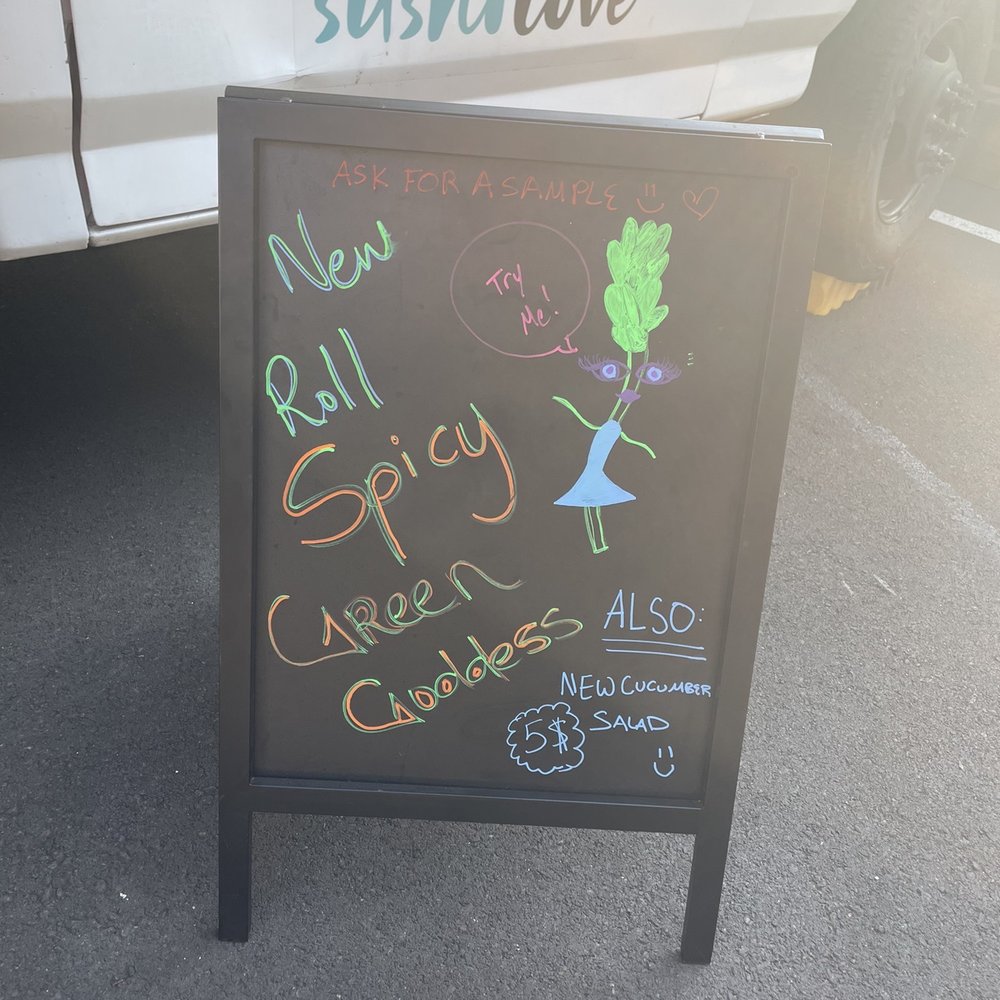 sushi love
ASK FOR A SAMPLE
New
Try
Me!
Roll
Spicy
Green
Goddess
ALSO:
NEW CUCUMBER
SALAD
5$